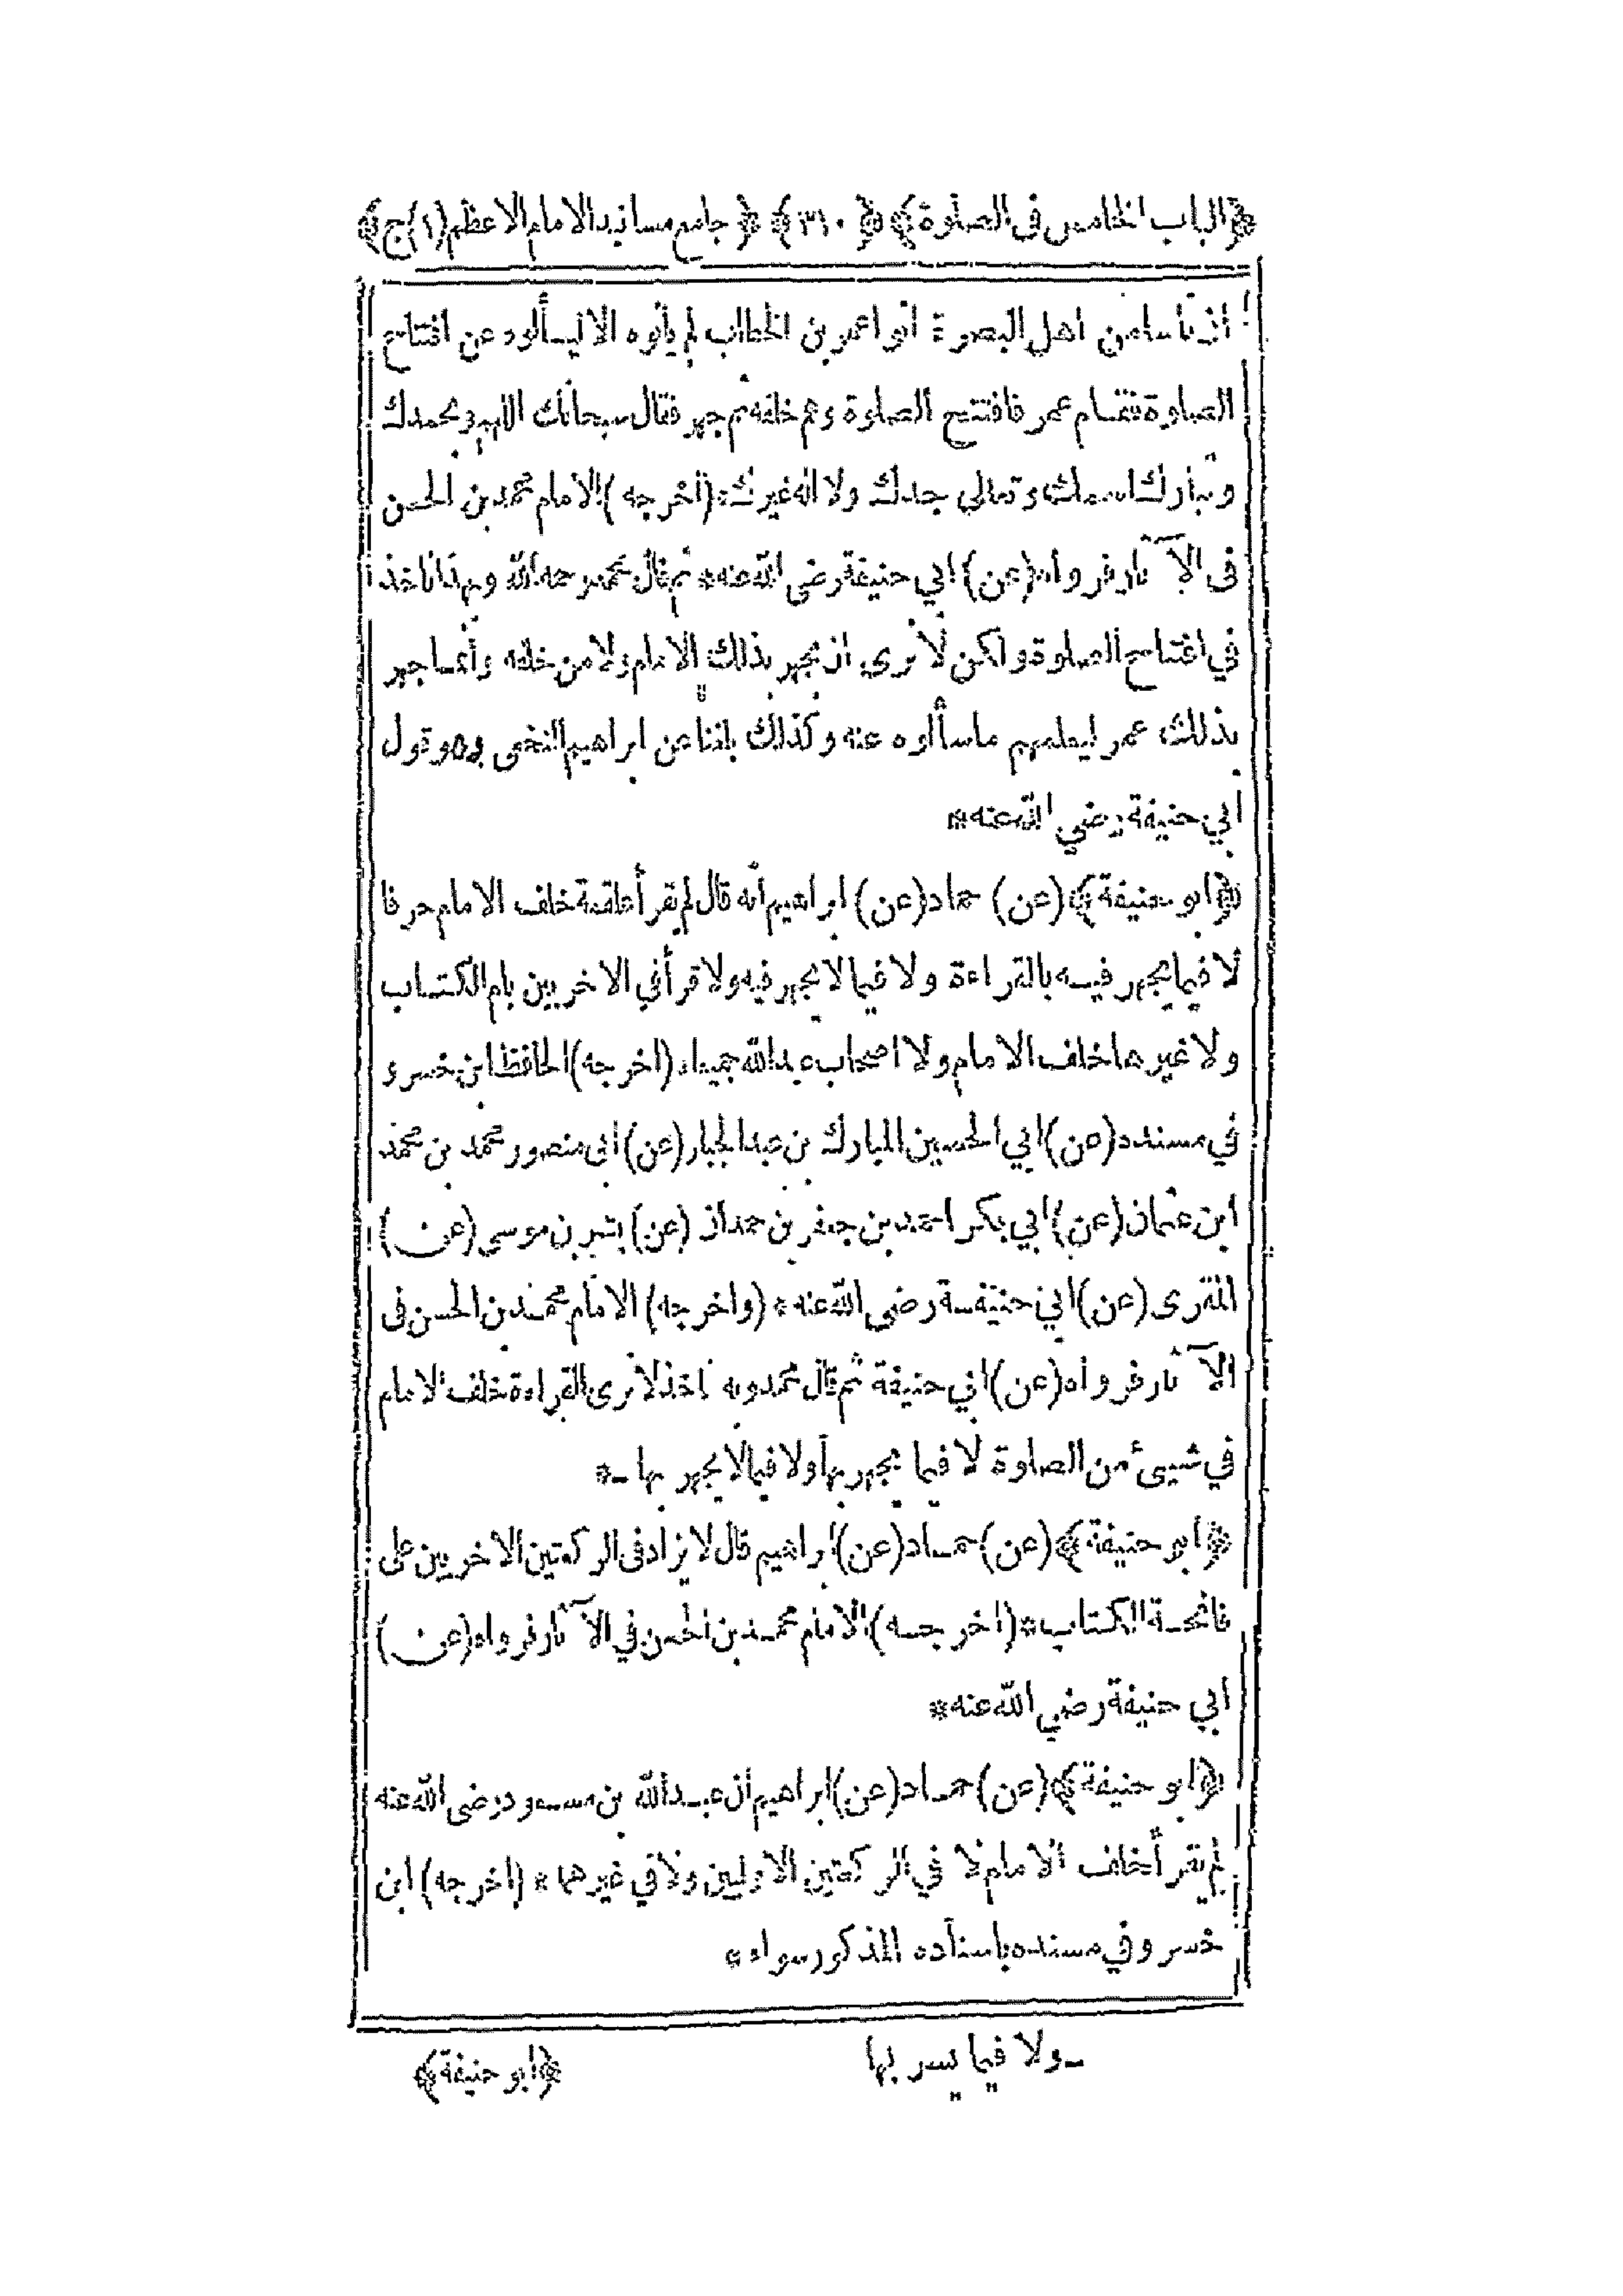 ﴿الباب الخامس فى الصلوة﴾ ﴿٣١٠﴾ ﴿جامع مسانيد الامام الاعظم (١) ج﴾
ان ناسا من اهل البصرة اتوا عمر بن الخطاب لم يأتوه الا ليسألوه عن افتتاح
الصلوة فقام عمر فافتتح الصلوة وهم خلفه ثم جهر فقال سبحانك اللهم وبحمدك
وتبارك اسمك وتعالى جدك ولا اله غيرك * (اخرجه) الامام محمد بن الحسن
فى الآثار فرواه (عن) ابي حنيفة رضى الله عنه * ثم قال محمد رحمه الله وبهذا ناخذ
في افتتاح الصلوة ولكن لا نرى ان يجهر بذلك الامام ولا من خلفه وانما جهر
بذلك عمر ليعلمهم ما سألوه عنه وكذلك بلغنا عن ابراهيم النخعى وهو قول
ابي حنيفة رضي الله عنه *
﴿ابو حنيفة﴾ (عن) حماد (عن) ابراهيم انه قال لم يقرأ علقمة خلف الامام حرفا
لا فيما يجهر فيه بالقراءة ولا فيما لا يجهر فيه ولا قرأ في الاخريين بام الكتاب
ولا غيرها خلف الامام ولا اصحاب عبد الله جميعا * (اخرجه) الحافظ ابن خسرو
في مسنده (عن) ابي الحسين المبارك بن عبد الجبار (عن) ابى منصور محمد بن محمد
ابن عثمان (عن) ابي بكر احمد بن جعفر بن حمدان (عن) بشر بن موسى (عن)
المقرى (عن) ابي حنيفة رضى الله عنه * (واخرجه) الامام محمد بن الحسن فى
الآثار فرواه (عن) ابي حنيفة ثم قال محمد وبه ناخذ لا نرى القراءة خلف الامام
في شيئ من الصلوة لا فيما يجهر بها ولا فيما لا يجهر بها ـ*
﴿ابو حنيفة﴾ (عن) حماد (عن) ابراهيم قال لا يزاد فى الركعتين الاخريين على
فاتحة الكتاب * (اخرجه) الامام محمد بن الحسن في الآثار فرواه (عن)
ابي حنيفة رضي الله عنه *
﴿ابو حنيفة﴾ (عن) حماد (عن) ابراهيم ان عبد الله بن مسعود رضى الله عنه
لم يقرأ خلف الامام لا في الركعتين الاوليين ولا في غيرهما * (اخرجه) ابن
خسرو في مسنده باسناده المذكور سواء *
ـ ولا فيما يسر بها
﴿ابو حنيفة﴾